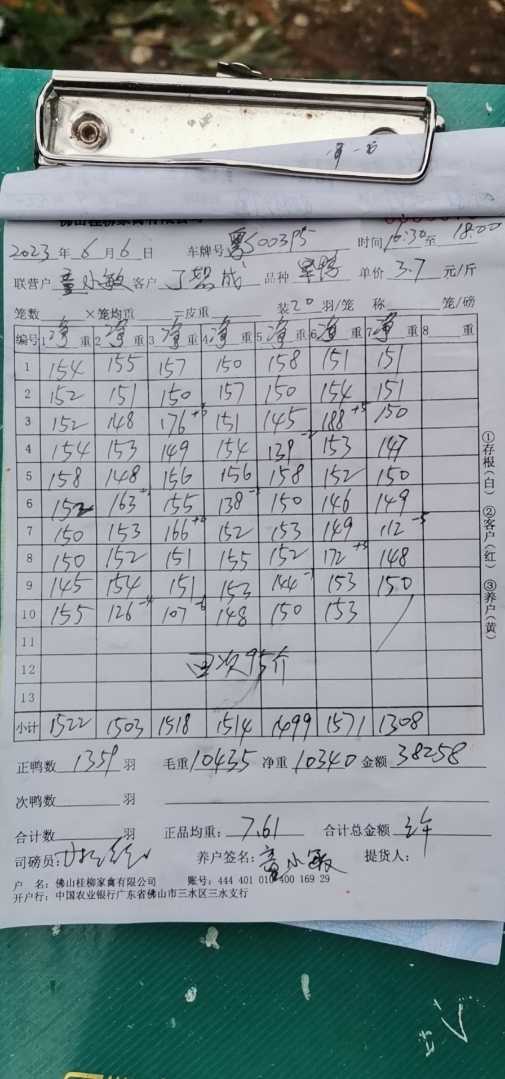 2023年6月6日 车牌号粤S003P5 时间16:30至18:00
联营户童小敏客户 品种 单价3.7元/斤
笼数 ×笼均重 =皮重 装20羽/笼 称 笼/磅
编号 1净重 2净重 3净重 4净重 5净重 6净重 7净重 8 重
1 154 155 157 150 158 151 151
2 152 151 150 157 150 154 151
3 152 148 176 151 145 188+5 150
4 154 153 149 154 139 153 147
5 158 148 156 156 158 152 150
6 152 163 155 138 150 146 149
7 150 153 166 152 153 149 112-5
8 150 152 151 155 152 172 148
9 145 154 151 153 144-1 153 150
10 155 126-4 107-6 148 150 153
11
12 回次95斤
13
小计 1522 1503 1518 1514 1499 1571 1308
正鸭数1359羽 毛重10435 净重10340 金额38258
次鸭数 羽
合计数 羽 正品均重:7.61 合计总金额
司磅员: 养户签名:童小敏 提货人:
户 名:佛山桂柳家禽有限公司 账号:444 401 010 400 169 29
开户行:中国农业银行广东省佛山市三水区三水支行
①存根(白) ②客户(红) ③养户(黄)